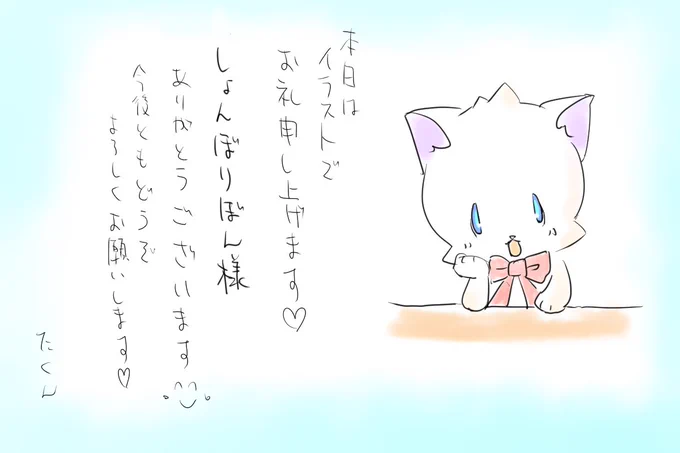 本日は
イラストで
お礼申し上げます♡
しょんぼりぼん様
ありがとうございます
今後ともどうぞ
よろしくお願いします♡
たくん